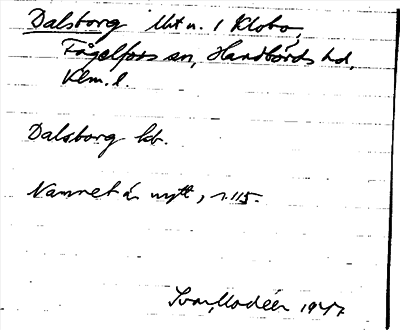 Dalsborg lht u. 1 Klobo,
Fågelfors sn, Handbörds hd,
Klm. l.
Dalsborg lht.
Namnet är nytt, s. 115.
Ivar Modéer 1947